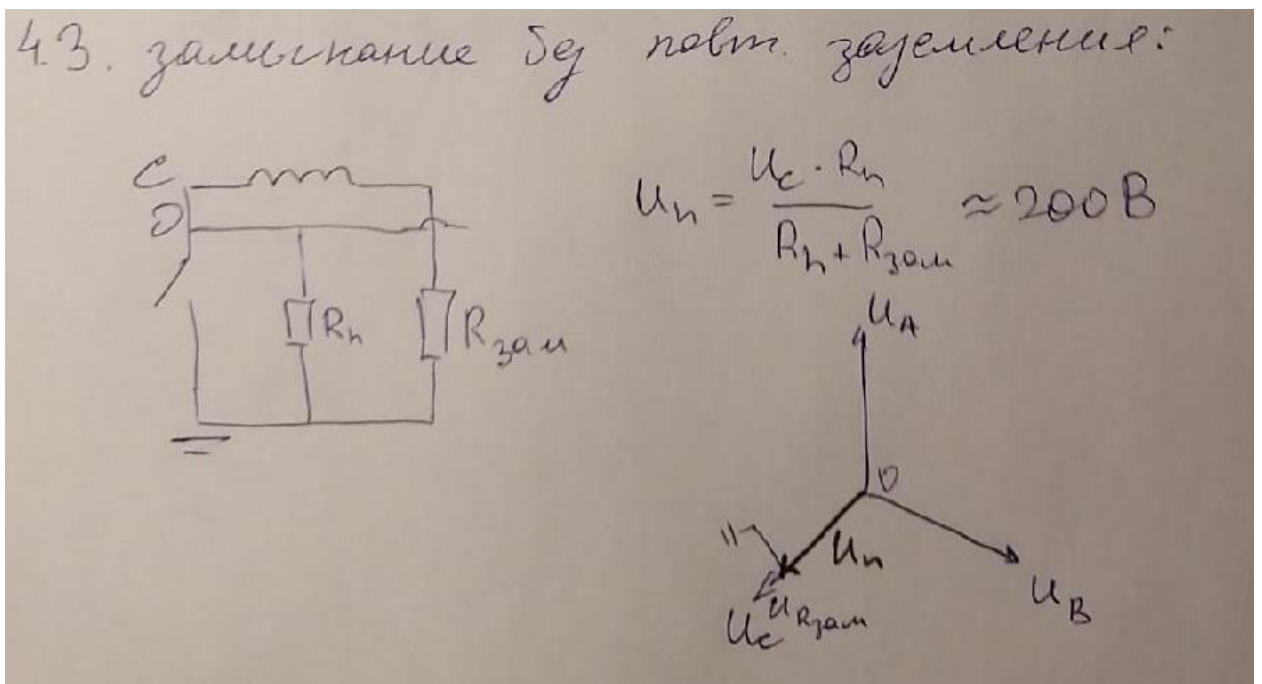 4.3. замыкание без повт. заземления:
C
O
Rₙ
Rзам
Uₙ = (U_c · Rₙ) / (Rₙ + Rзам) ≈ 200 В
U_A
O
Uₙ
U_B
U_Rзам
U_c